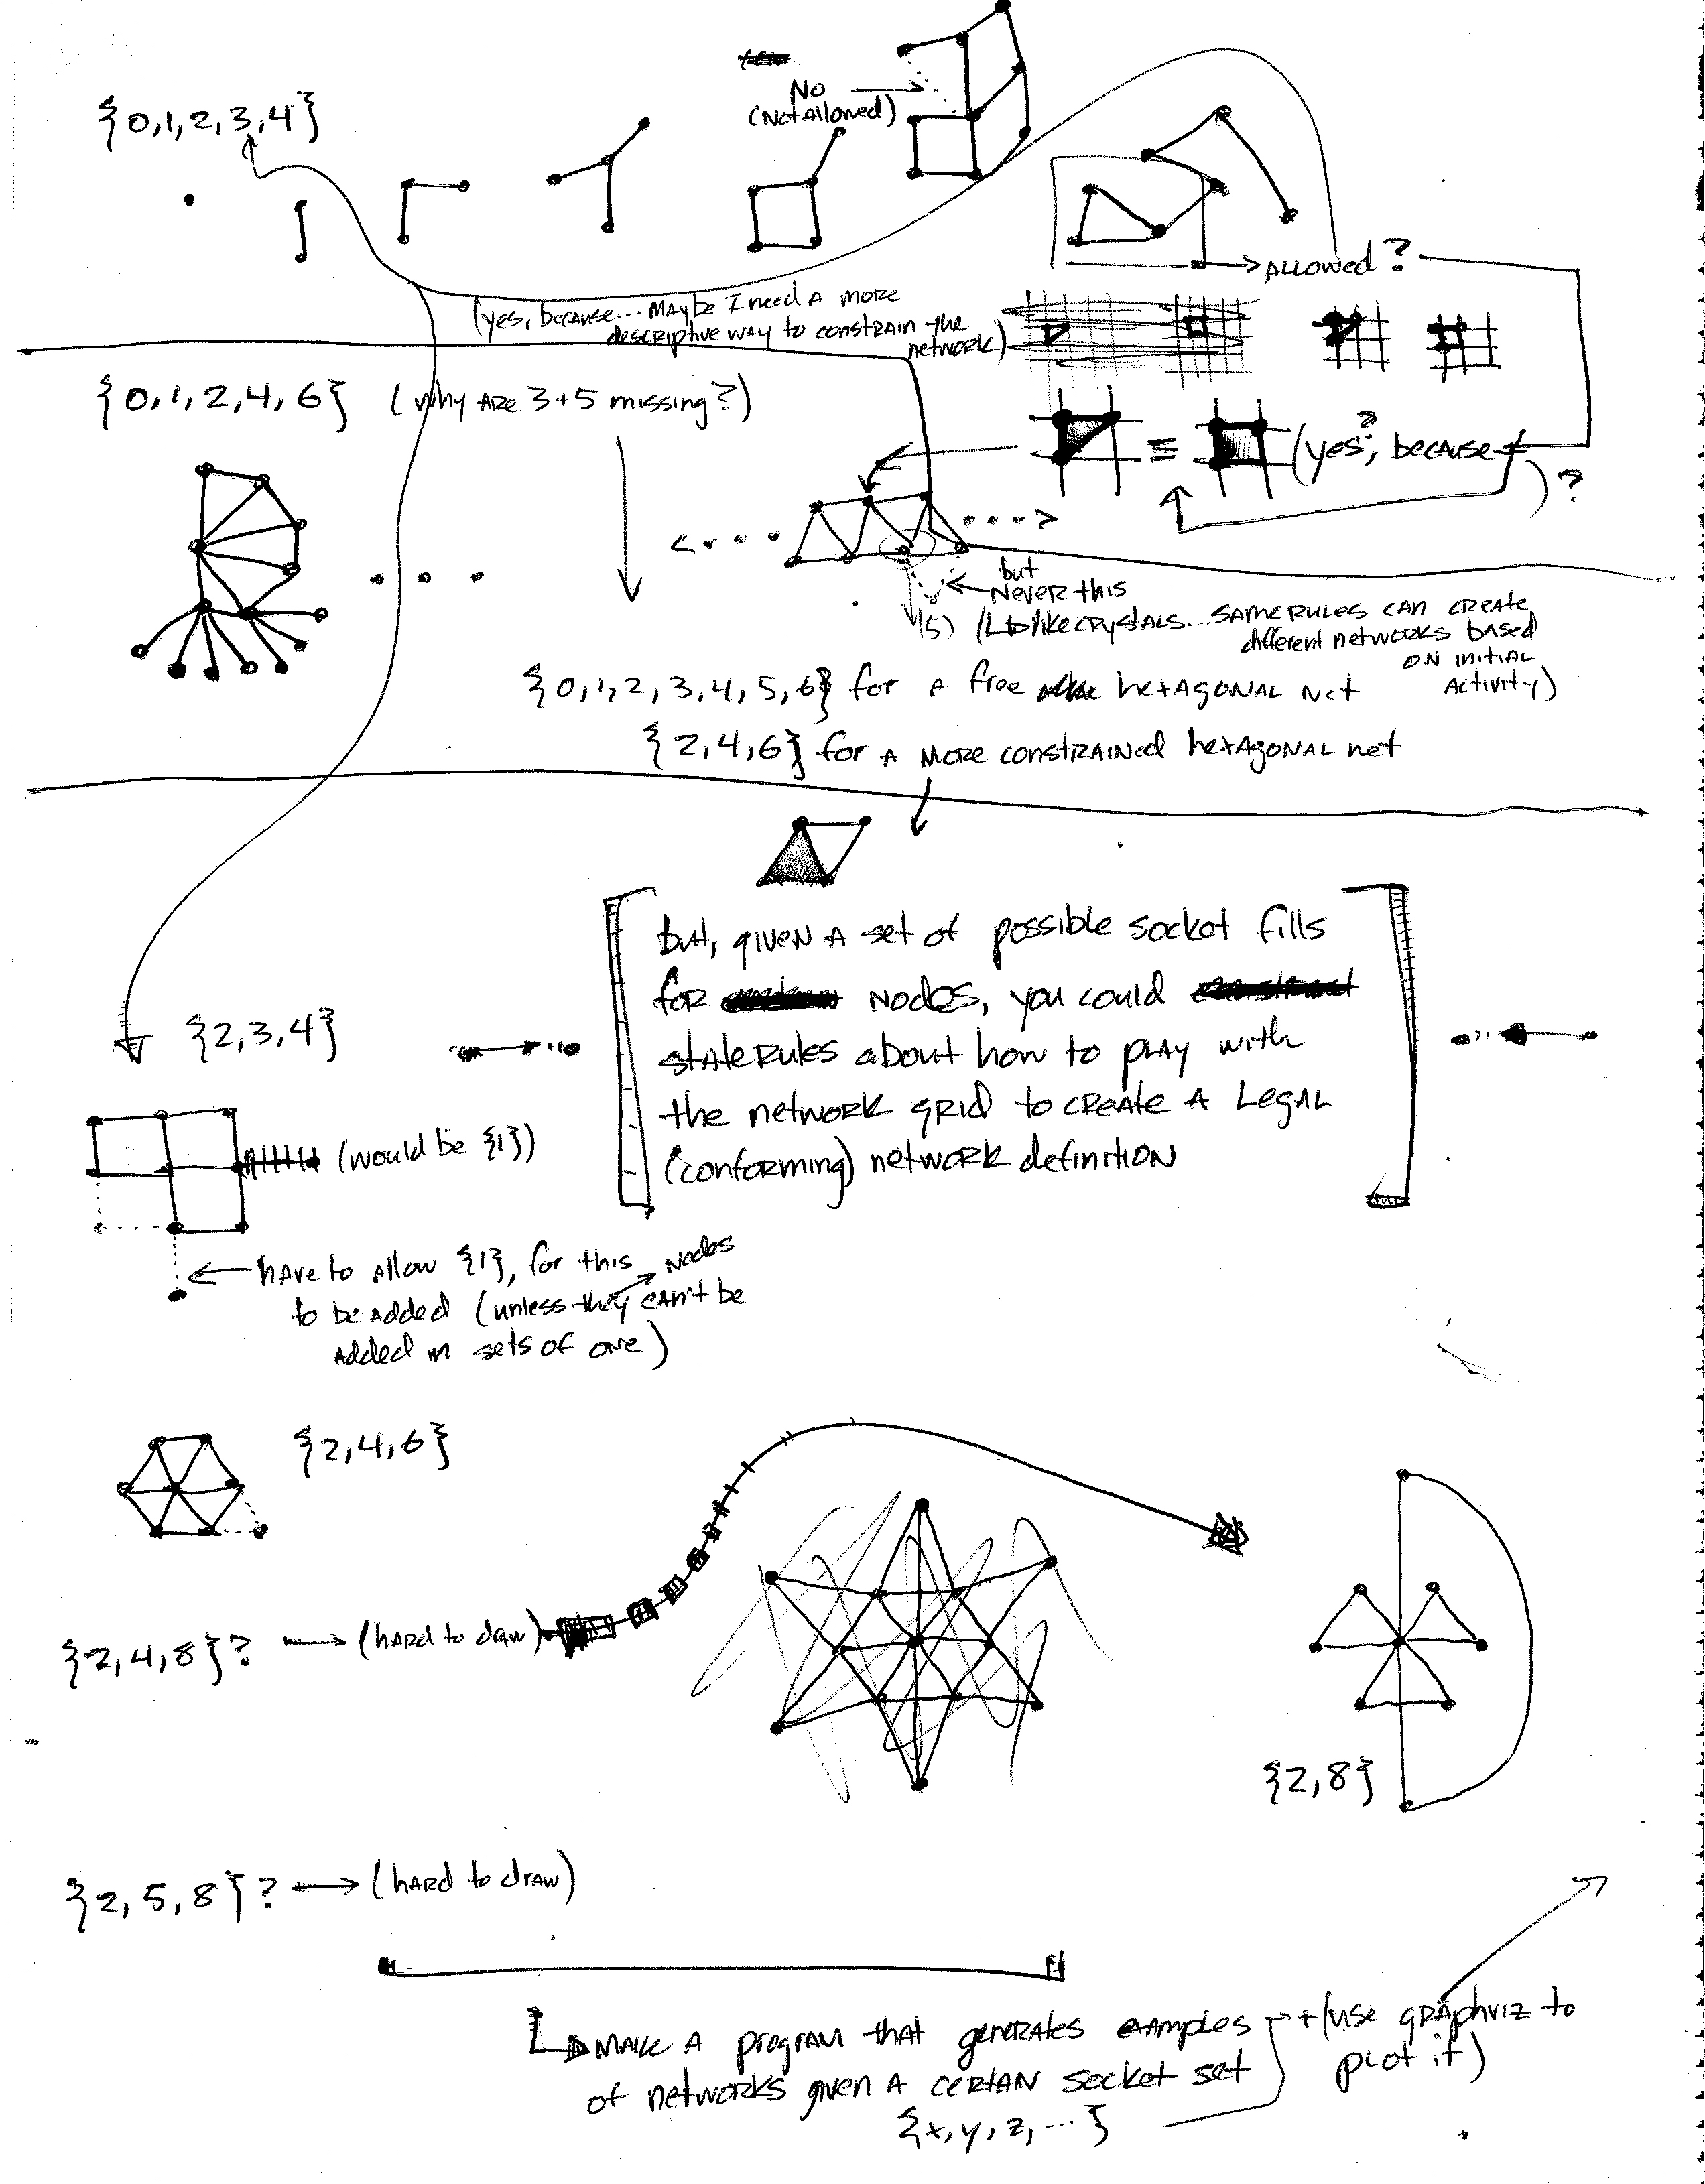 No
(Not Allowed)
{0,1,2,3,4}
ALLOWED?
(yes, because... Maybe I need a more
descriptive way to constrain the
network)
{0,1,2,4,6} (why are 3+5 missing?)
≡
(yes?, because
)?
but
Never this
(5) (like crystals... same rules can create
different networks based
on initial
activity)
{0,1,2,3,4,5,6} for a free hexagonal net
{2,4,6} for a more constrained hexagonal net
but, given a set of possible socket fills
for nodes, you could
state rules about how to play with
the network grid to create a legal
(conforming) network definition
{2,3,4}
(would be {1})
have to allow {1}, for this nodes
to be added (unless they can't be
added in sets of one)
{2,4,6}
{2,4,8}? → (hard to draw)
{2,8}
{2,5,8}? → (hard to draw)
Make a program that generates examples
of networks given a certain socket set
{x,y,z,...}
+ (use graphviz to
plot it)